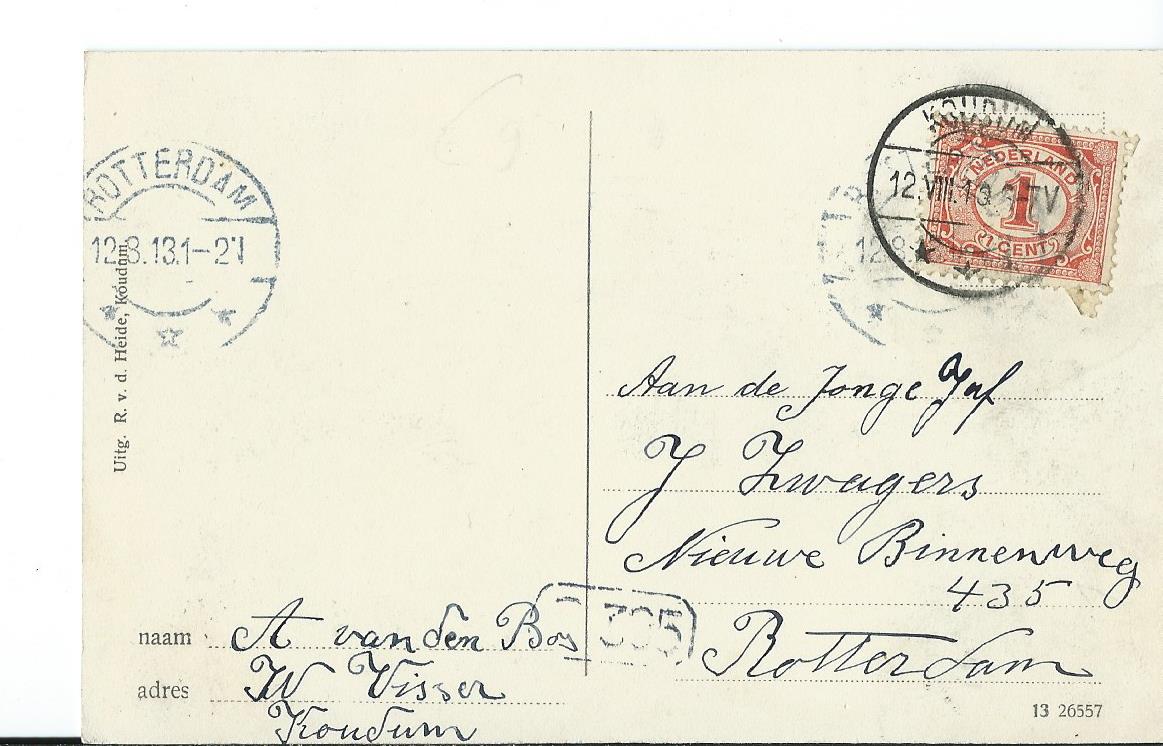 ROTTERDAM
12.8.13.1-2 N
Uitg. R. v. d. Heide, Koudum
KOUDUM
12.VIII.13. -7V
NEDERLAND
1
1 CENT
12.8.
Aan de Jonge Juf
J Zwagers
Nieuwe Binnenweg
435
Rotterdam
395
naam A van den Bos
adres W Visser
Koudum
13 26557